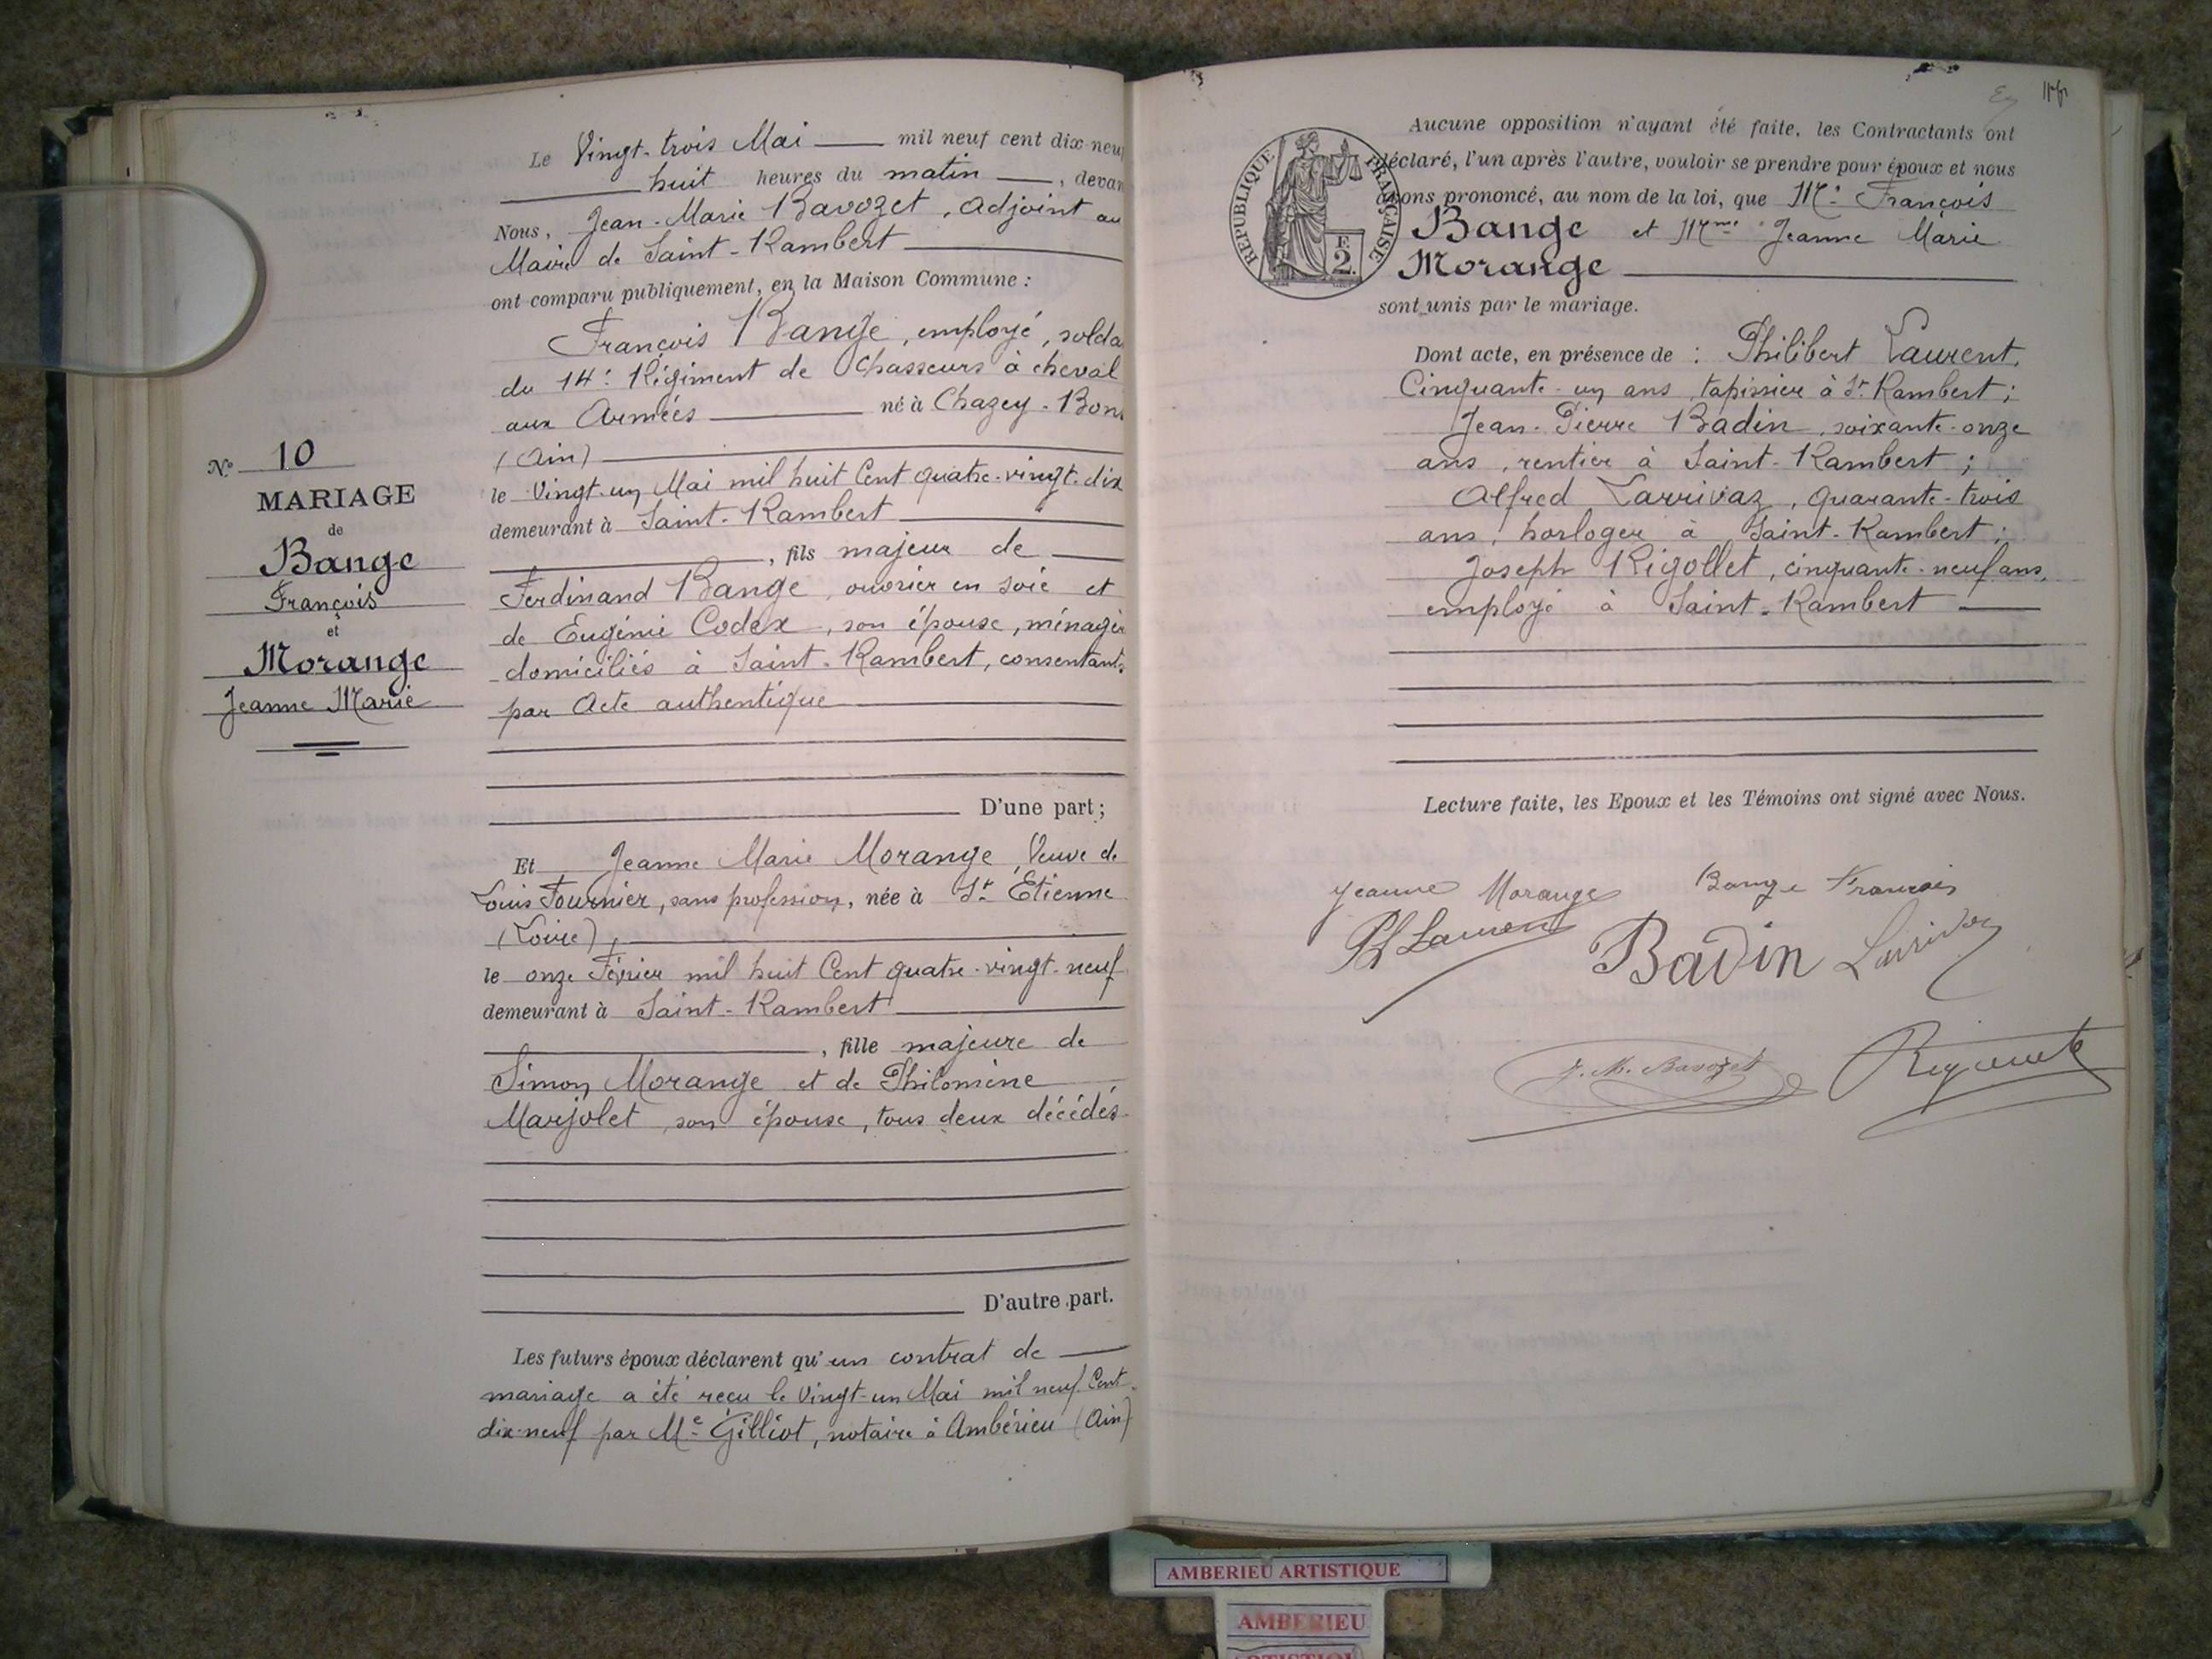 Le Vingt-trois Mai mil neuf cent dix-neu
huit heures du matin, devan
Nous, Jean-Marie Bavozet, Adjoint au
Maire de Saint-Rambert
ont comparu publiquement, en la Maison Commune :
François Bange, employé, solda
du 14e Régiment de Chasseurs à cheval
aux Armées né à Chazey-Bon
(Ain)
le Vingt-un Mai mil huit Cent quatre-vingt-dix
demeurant à Saint-Rambert
, fils majeur de
Ferdinand Bange, ouvrier en soie et
de Eugénie Codex, son épouse, ménagèr
domiciliés à Saint-Rambert, consentants
par Acte authentique
D'une part ;
Et Jeanne Marie Morange, Veuve de
Louis Fournier, sans profession, née à St Etienne
(Loire),
le onze Février mil huit Cent quatre-vingt-neuf
demeurant à Saint-Rambert
, fille majeure de
Simon Morange et de Philomène
Marjolet, son épouse, tous deux décédés
D'autre part.
Les futurs époux déclarent qu'un contrat de
mariage a été reçu le Vingt-un Mai mil neuf Cent
dix-neuf par Me Gilliot, notaire à Ambérieu (Ain)
No 10
MARIAGE
de
Bange
François
et
Morange
Jeanne Marie
REPUBLIQUE FRANÇAISE
F.
2.
Aucune opposition n'ayant été faite, les Contractants ont
déclaré, l'un après l'autre, vouloir se prendre pour époux et nous
avons prononcé, au nom de la loi, que Mr François
Bange et Mme Jeanne Marie
Morange
sont unis par le mariage.
Dont acte, en présence de : Philibert Laurent,
Cinquante-un ans, tapissier à St Rambert ;
Jean-Pierre Badin, soixante-onze
ans, rentier à Saint-Rambert ;
Alfred Larrivaz, quarante-trois
ans, horloger à Saint-Rambert ;
Joseph Rigollet, cinquante-neuf ans,
employé à Saint-Rambert
Lecture faite, les Epoux et les Témoins ont signé avec Nous.
Jeanne Morange Bange François
Ph Laurent Badin Larrivaz
J. M. Bavozet
AMBERIEU ARTISTIQUE
AMBERIEU
ARTISTIQU